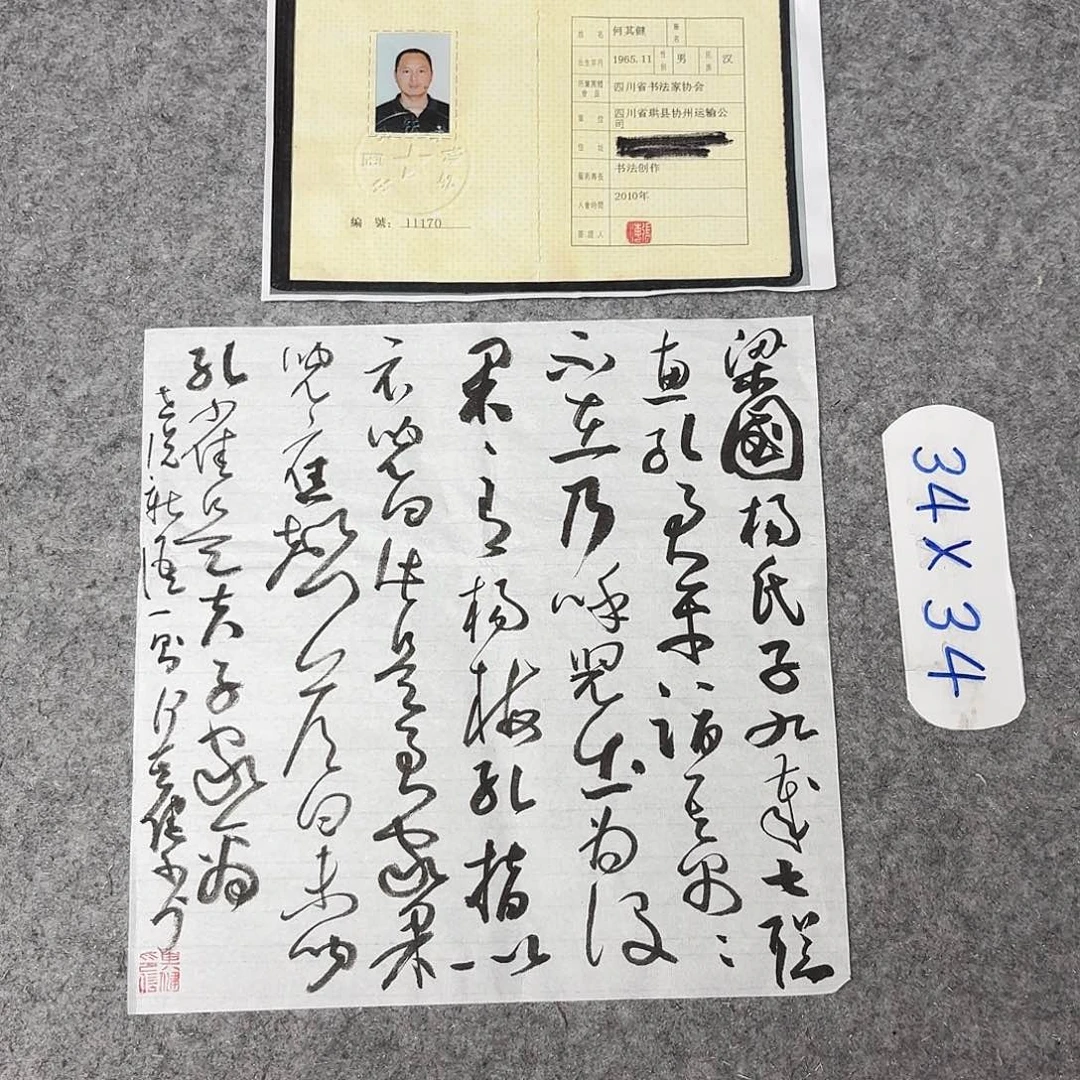 姓名 何其健
出生年月 1965.11 性别 男 民族 汉
四川省书法家协会
單位 四川省珙县协州运输公
司
住址
书法创作
入會時間 2010年
簽證人
編 號: 11170
梁國楊氏子九歲甚聰
惠孔君平詣其父〻
不在乃呼兒出為設
果〻有楊梅孔指以
示兒曰此是君家果
兒應聲答曰未聞
孔雀是夫子家禽
世說新語一則何其健书
34×34